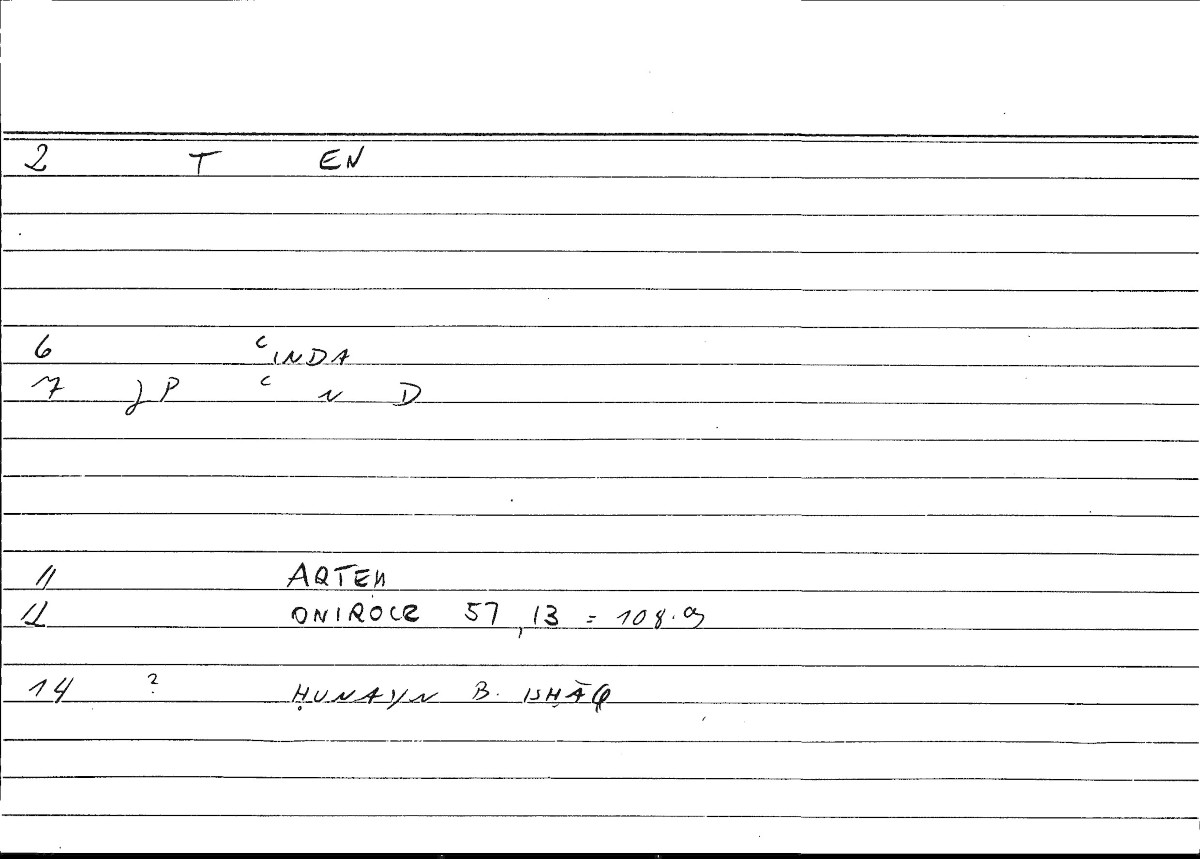 2 T EN
6 ʿINDA
7 ʿ N D
11 ARTEM
12 ONIROCR 57,13 = 108.9
14 ? ḤUNAYN B. ISḤĀQ